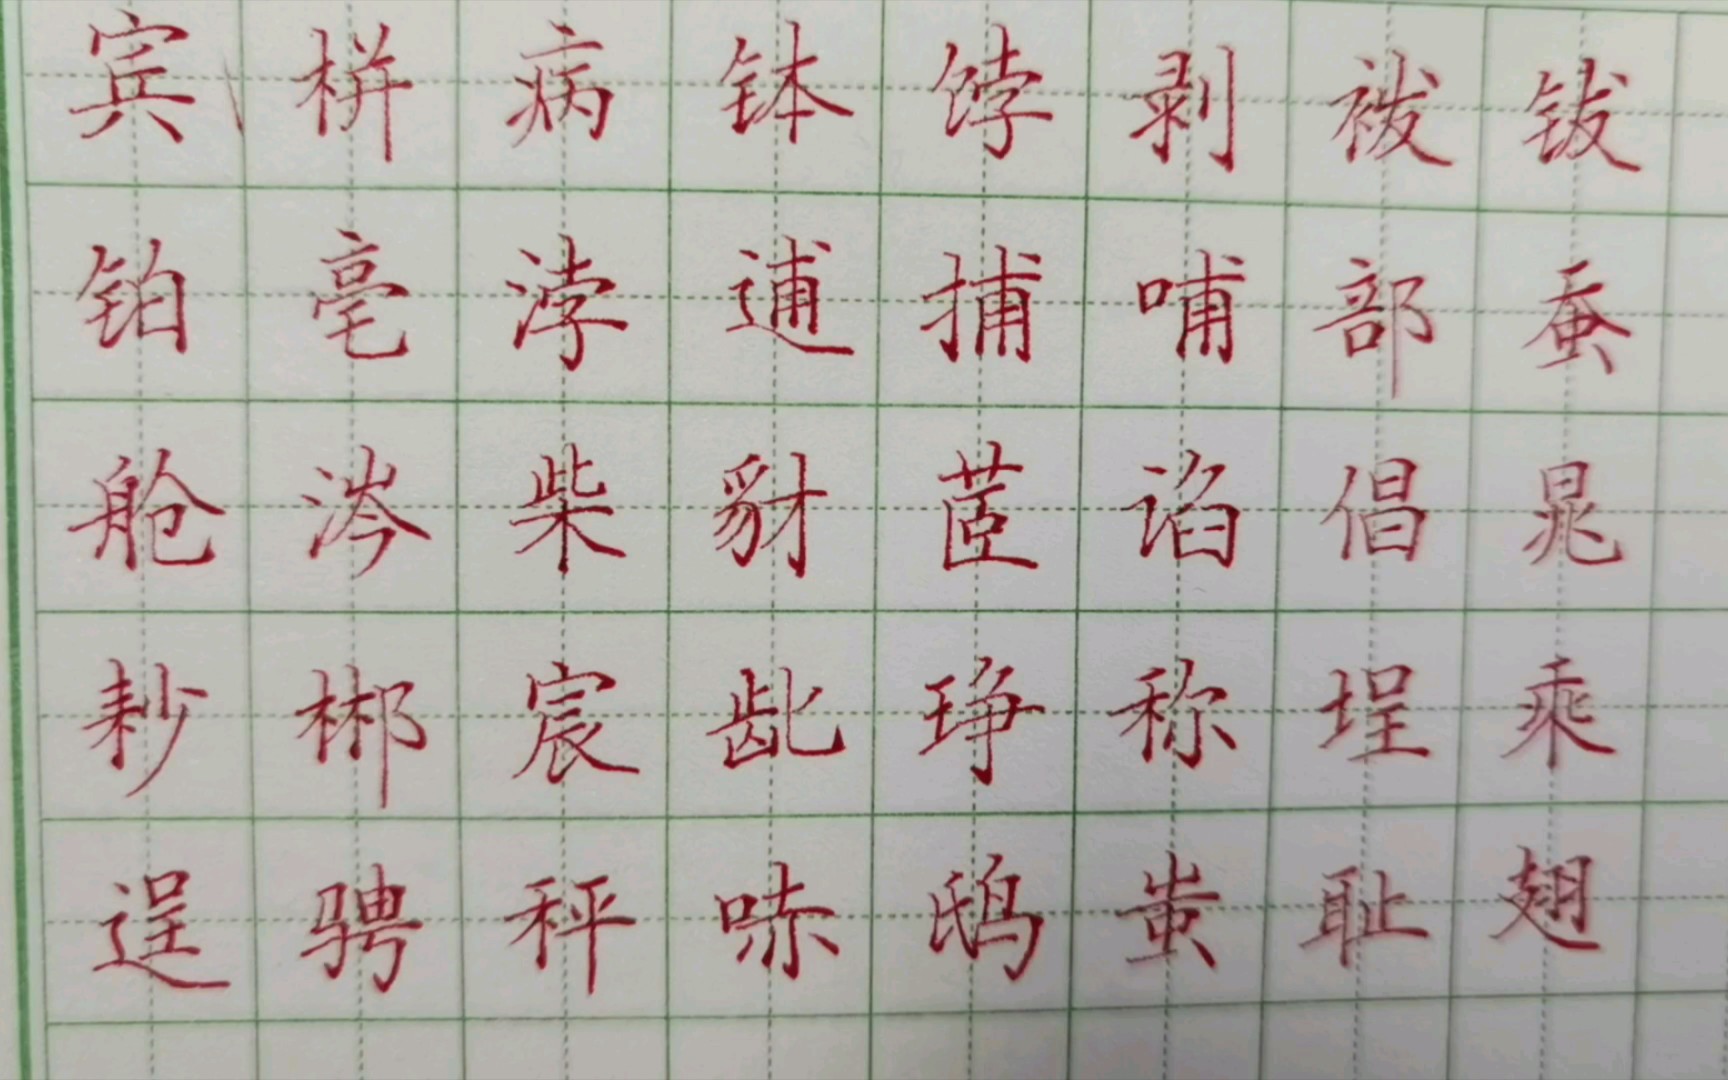 宾栟病钵饽剥袯钹
铂亳浡逋捕哺部蚕
舱涔柴豺茝谄倡晁
耖郴宸龀琤称埕乘
逞骋秤哧鸱蚩耻翅